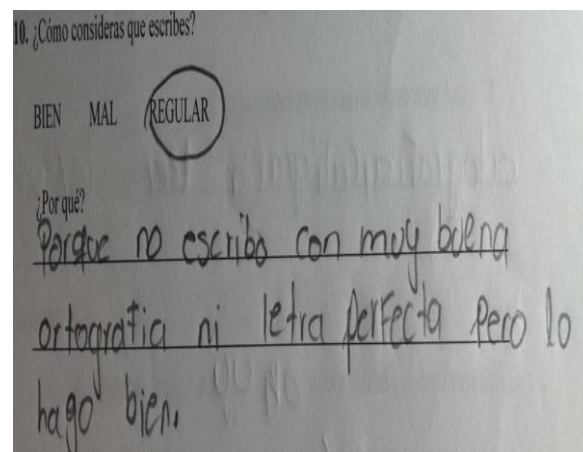 10. ¿Cómo consideras que escribes?
BIEN MAL REGULAR
¿Por qué?
Porque no escribo con muy buena
ortografia ni letra perfecta pero lo
hago bien.